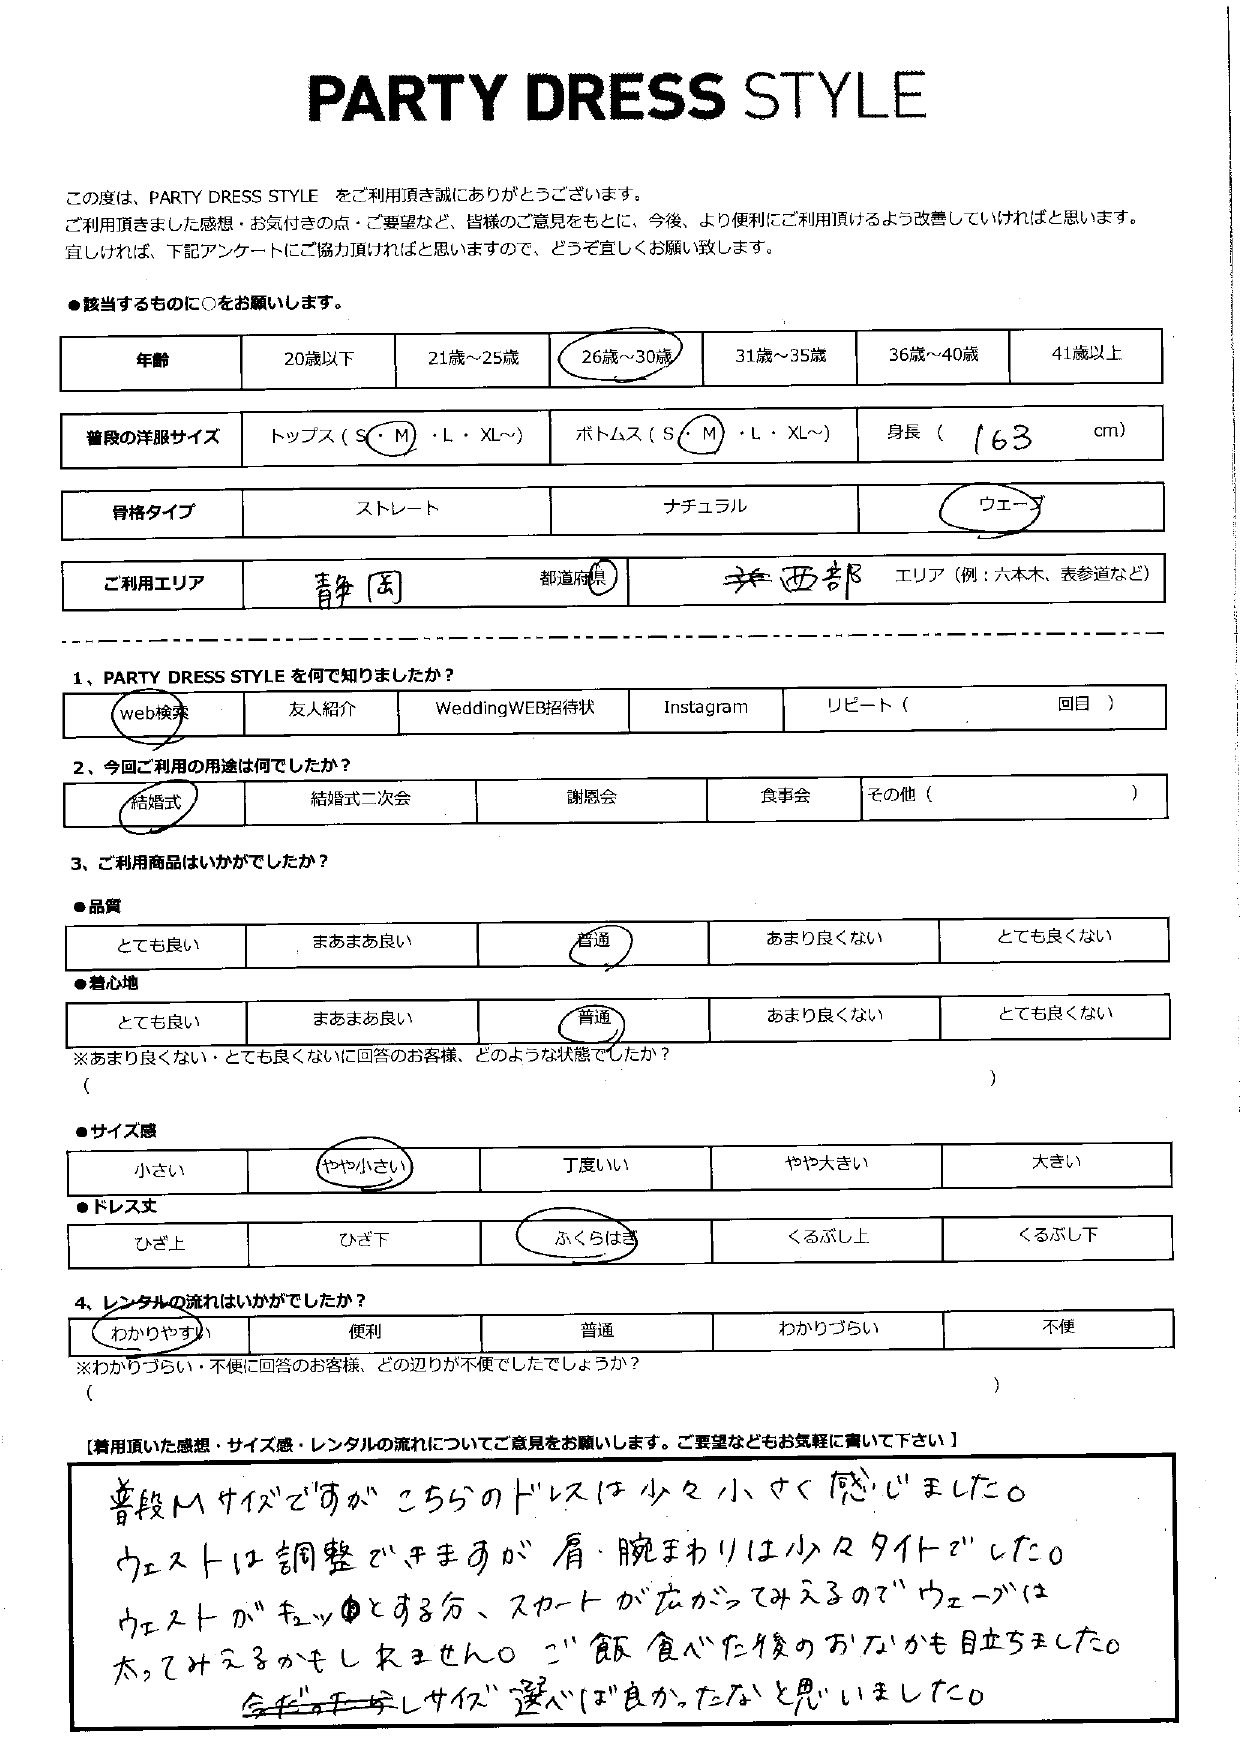 PARTY DRESS STYLE
この度は、PARTY DRESS STYLE をご利用頂き誠にありがとうございます。
ご利用頂きました感想・お気付きの点・ご要望など、皆様のご意見をもとに、今後、より便利にご利用頂けるよう改善していければと思います。
宜しければ、下記アンケートにご協力頂ければと思いますので、どうぞ宜しくお願い致します。
●該当するものに○をお願いします。
年齢 20歳以下 21歳～25歳 26歳～30歳 31歳～35歳 36歳～40歳 41歳以上
普段の洋服サイズ トップス ( S ・ M ・ L ・ XL～) ボトムス ( S ・ M ・ L ・ XL～) 身長 ( 163 cm)
骨格タイプ ストレート ナチュラル ウェーブ
ご利用エリア 静岡 都道府県 西部 エリア (例：六本木、表参道など)
1、PARTY DRESS STYLE を何で知りましたか？
web検索 友人紹介 WeddingWEB招待状 Instagram リピート ( 回目 )
2、今回ご利用の用途は何でしたか？
結婚式 結婚式二次会 謝恩会 食事会 その他 ( )
3、ご利用商品はいかがでしたか？
●品質
とても良い まあまあ良い 普通 あまり良くない とても良くない
●着心地
とても良い まあまあ良い 普通 あまり良くない とても良くない
※あまり良くない・とても良くないに回答のお客様、どのような状態でしたか？
( )
●サイズ感
小さい やや小さい 丁度いい やや大きい 大きい
●ドレス丈
ひざ上 ひざ下 ふくらはぎ くるぶし上 くるぶし下
4、レンタルの流れはいかがでしたか？
わかりやすい 便利 普通 わかりづらい 不便
※わかりづらい・不便に回答のお客様、どの辺りが不便でしたでしょうか？
( )
【着用頂いた感想・サイズ感・レンタルの流れについてご意見をお願いします。ご要望などもお気軽に書いて下さい 】
普段Mサイズですが こちらのドレスは少々小さく感じました。
ウェストは調整できますが 肩・腕まわりは少々タイトでした。
ウェストがキュッとする分、スカートが広がってみえるのでウェーブは
太ってみえるかもしれません。ご飯食べた後のおなかも目立ちました。
Lサイズ選べば良かったなと思いました。